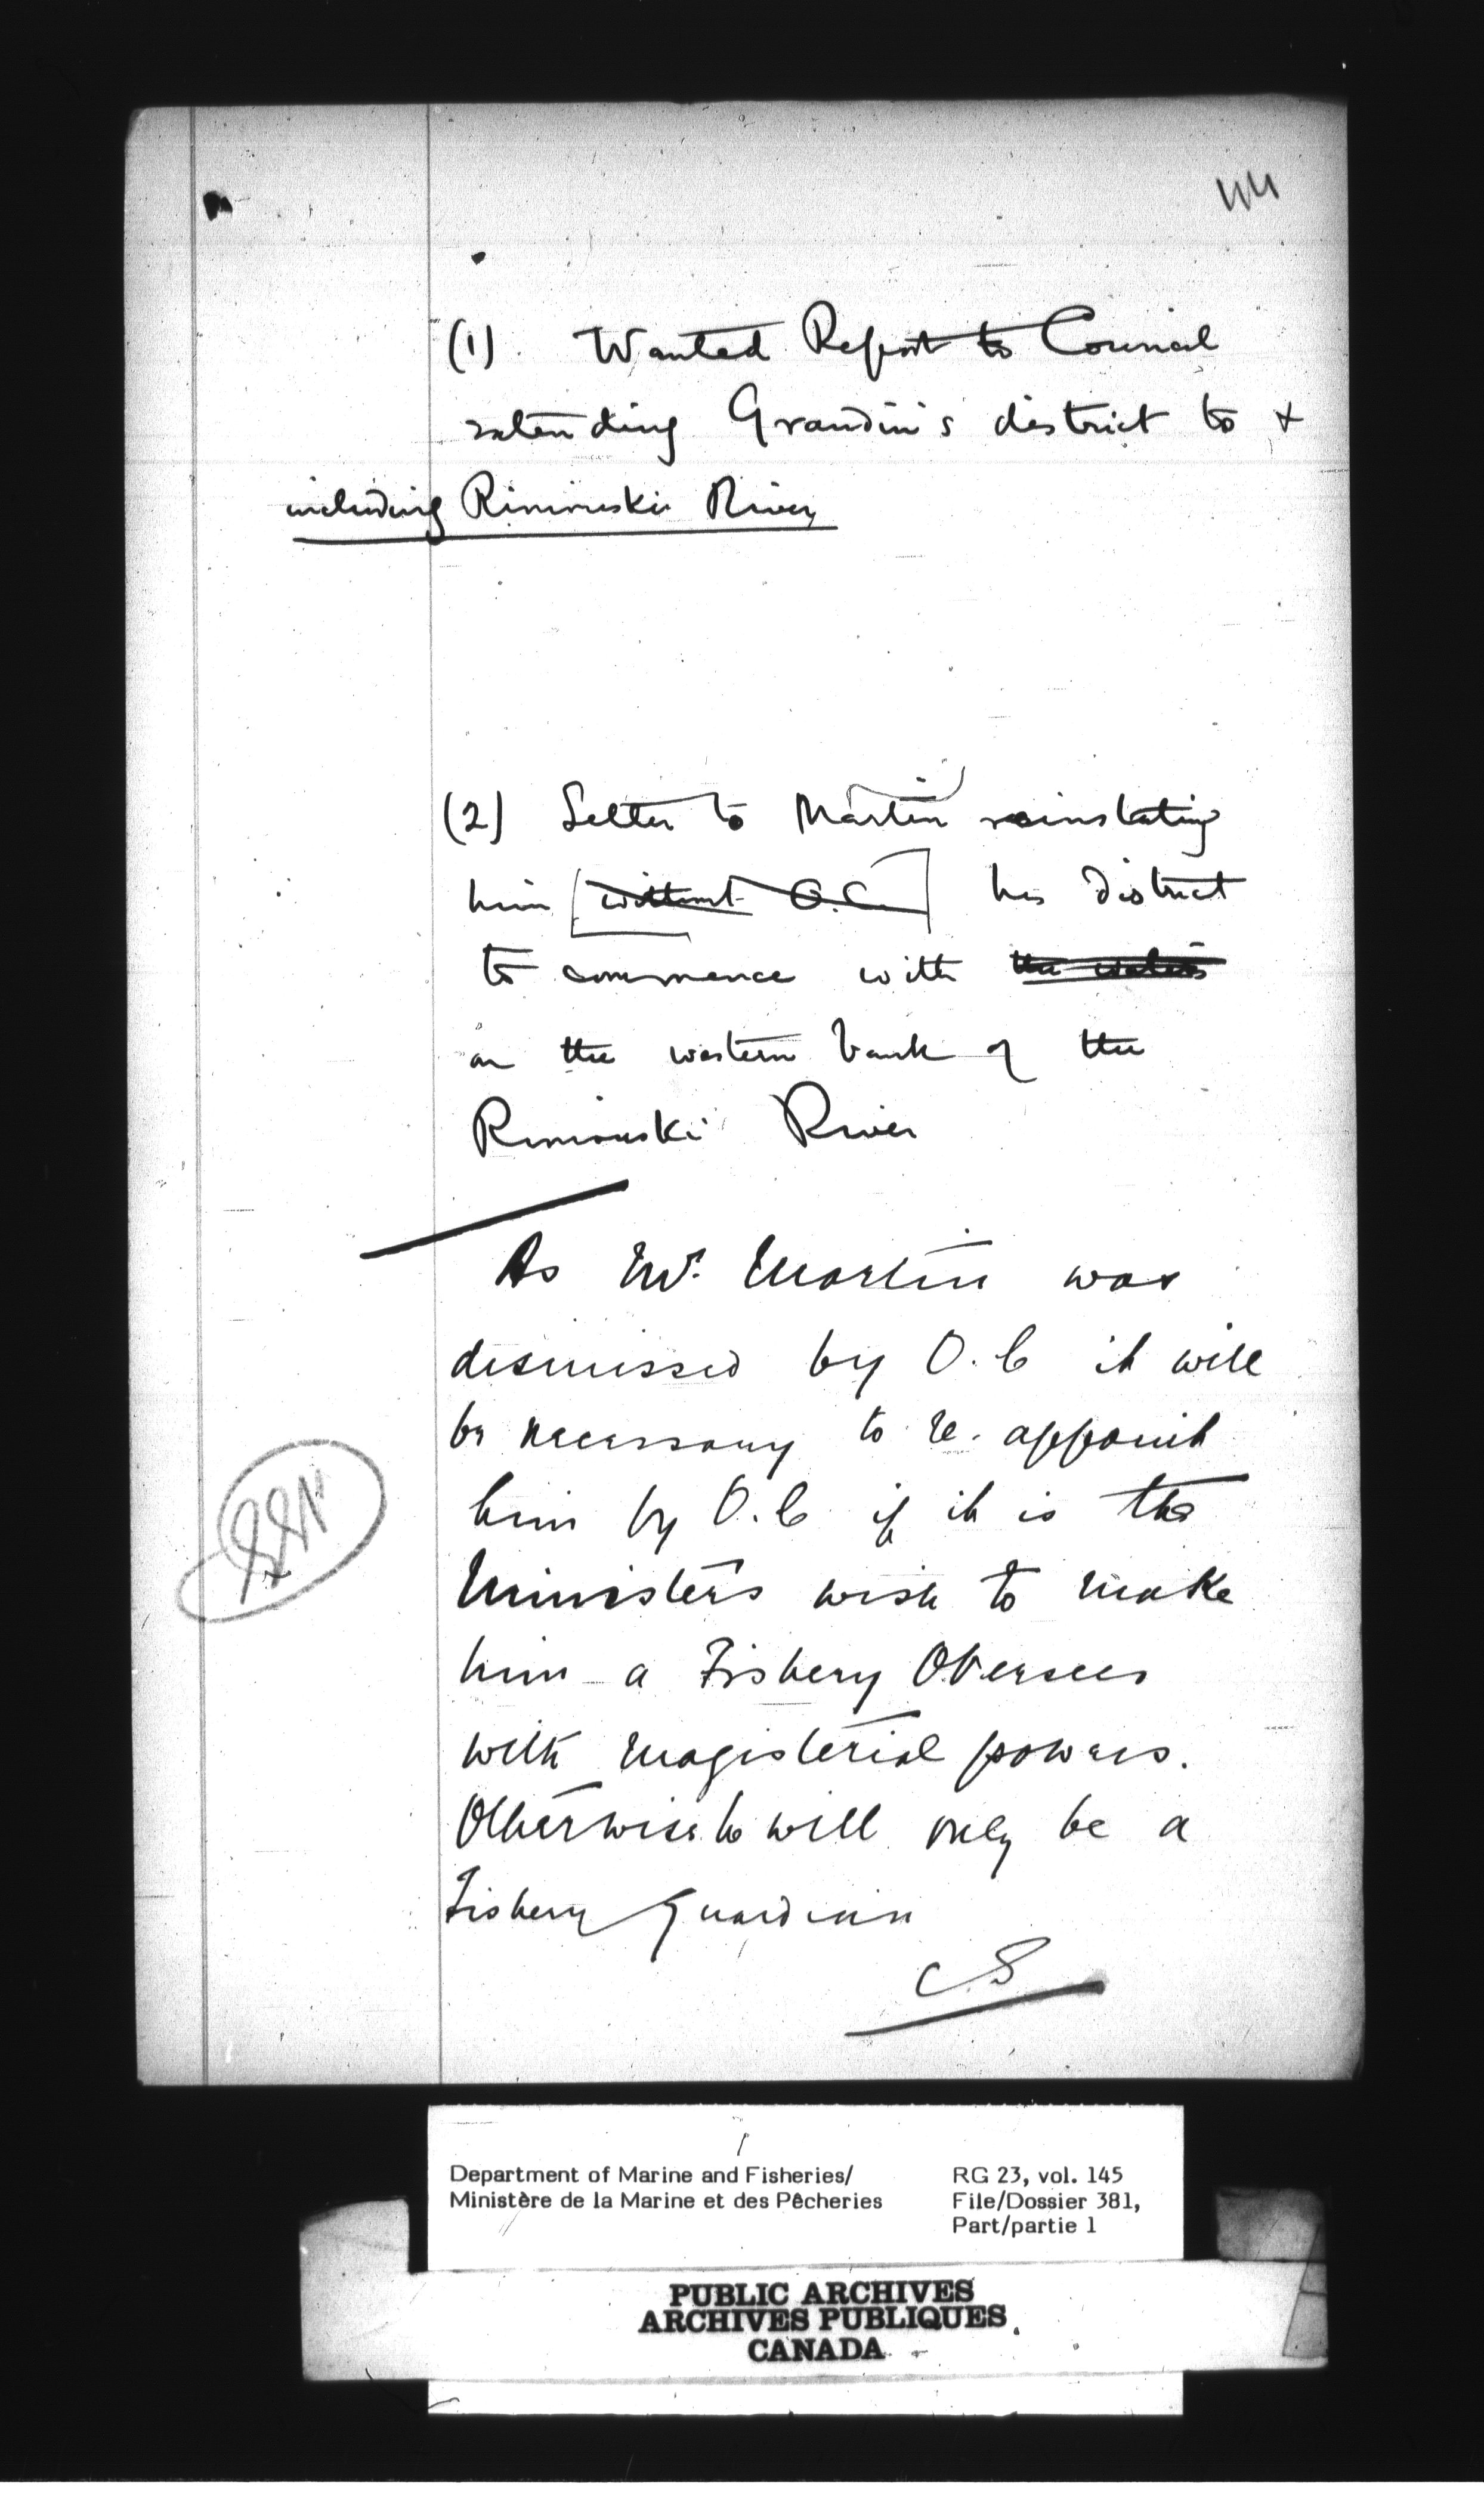 44
(1). Wanted Report to Council
extending Grandin's district to +
including Rimouski River
(2) Letter to Martin reinstating
him [without O.C.] his district
to commence with the waters
on the western bank of the
Rimouski River
As Mr. Martin was
dismissed by O.C it will
be necessary to re-appoint
him by O.C if it is the
Ministers wish to make
him a Fishery Overseer
with magisterial powers.
Otherwise he will only be a
Fishery Guardian
C.S
Department of Marine and Fisheries/
Ministère de la Marine et des Pêcheries
RG 23, vol. 145
File/Dossier 381,
Part/partie 1
PUBLIC ARCHIVES
ARCHIVES PUBLIQUES
CANADA